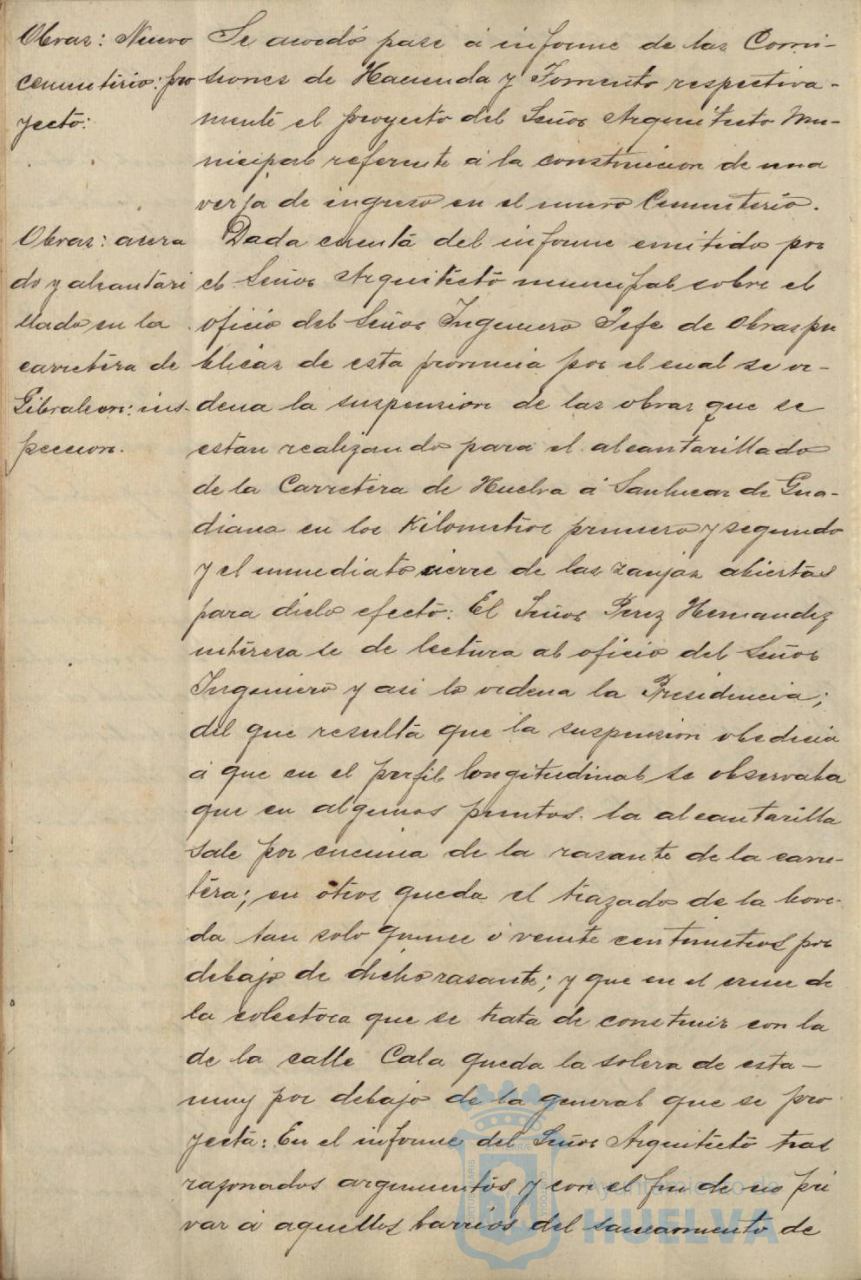 Obras: Nuevo
cementerio: pro
yecto:
Se acordó pase á informe de las Comi-
siones de Hacienda y Fomento respectiva-
mente el proyecto del Señor Arquitecto Mu-
nicipal referente á la construccion de una
verja de ingreso en el nuevo Cementerio.
Obras: acera
do y alcantari
llado en la
carretera de
Gibraleon: ins-
peccion.
Dada cuenta del informe emitido por
el Señor Arquitecto municipal sobre el
oficio del Señor Ingeniero Jefe de Obras pu
blicas de esta provincia por el cual se or-
dena la suspension de las obras que se
estan realizando para el alcantarillado
de la Carretera de Huelva á Sanlucar de Gua-
diana en los Kilometros primero y segundo
y el inmediato cierre de las zanjas abiertas
para dicho efecto: El Señor Perez Hernandez
interesa se de lectura al oficio del Señor
Ingeniero y asi lo ordena la Presidencia;
del que resulta que la suspension obedecia
á que en el perfil longitudinal se observaba
que en algunos puntos la alcantarilla
sale por encima de la rasante de la carre-
tera; en otros queda el trazado de la bove-
da tan solo quince ó veinte centimetros por
debajo de dicho rasante; y que en el cruce de
la colectora que se trata de construir con la
de la calle Cala queda la solera de esta-
muy por debajo de la general que se pro
yecta: En el informe del Señor Arquitecto tras
razonados argumentos y con el fin de no pri
var á aquellos barrios del saneamiento de
Ayuntamiento de
HUELVA